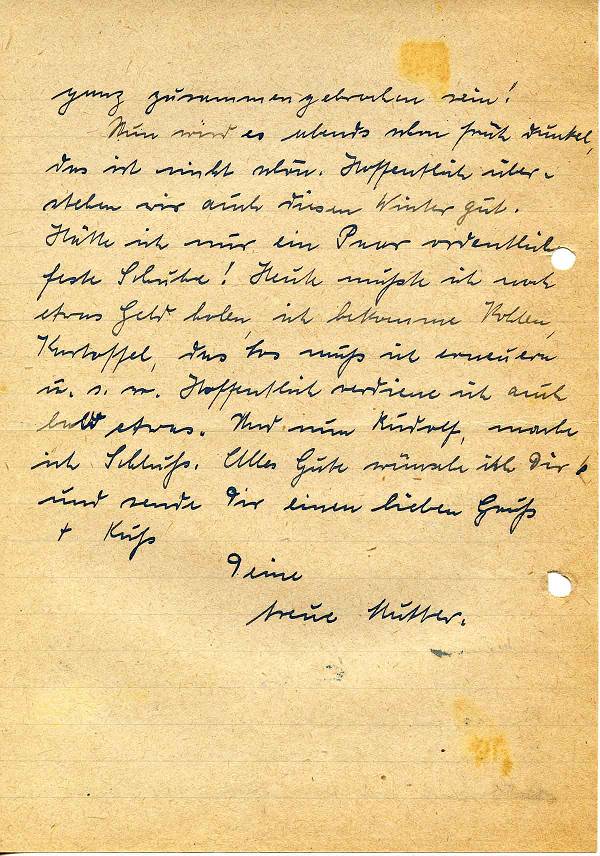 ganz zusammengebrochen sein!
Nun wird es abends schon früh dunkel,
das ist nicht schön. Hoffentlich über-
stehen wir auch diesen Winter gut.
Hätte ich nur ein Paar ordentlich
feste Schuhe! Heute mußte ich noch
etwas Geld holen, ich bekomme Kohlen,
Kartoffel, das muß ich erneuern
u. s. w. Hoffentlich verdiene ich auch
bald etwas. Und nun Rudolf, mache
ich Schluß. Alles Gute wünsche ich Dir
und sende Dir einen lieben Gruß
+ Kuß
Deine
treue Mutter.